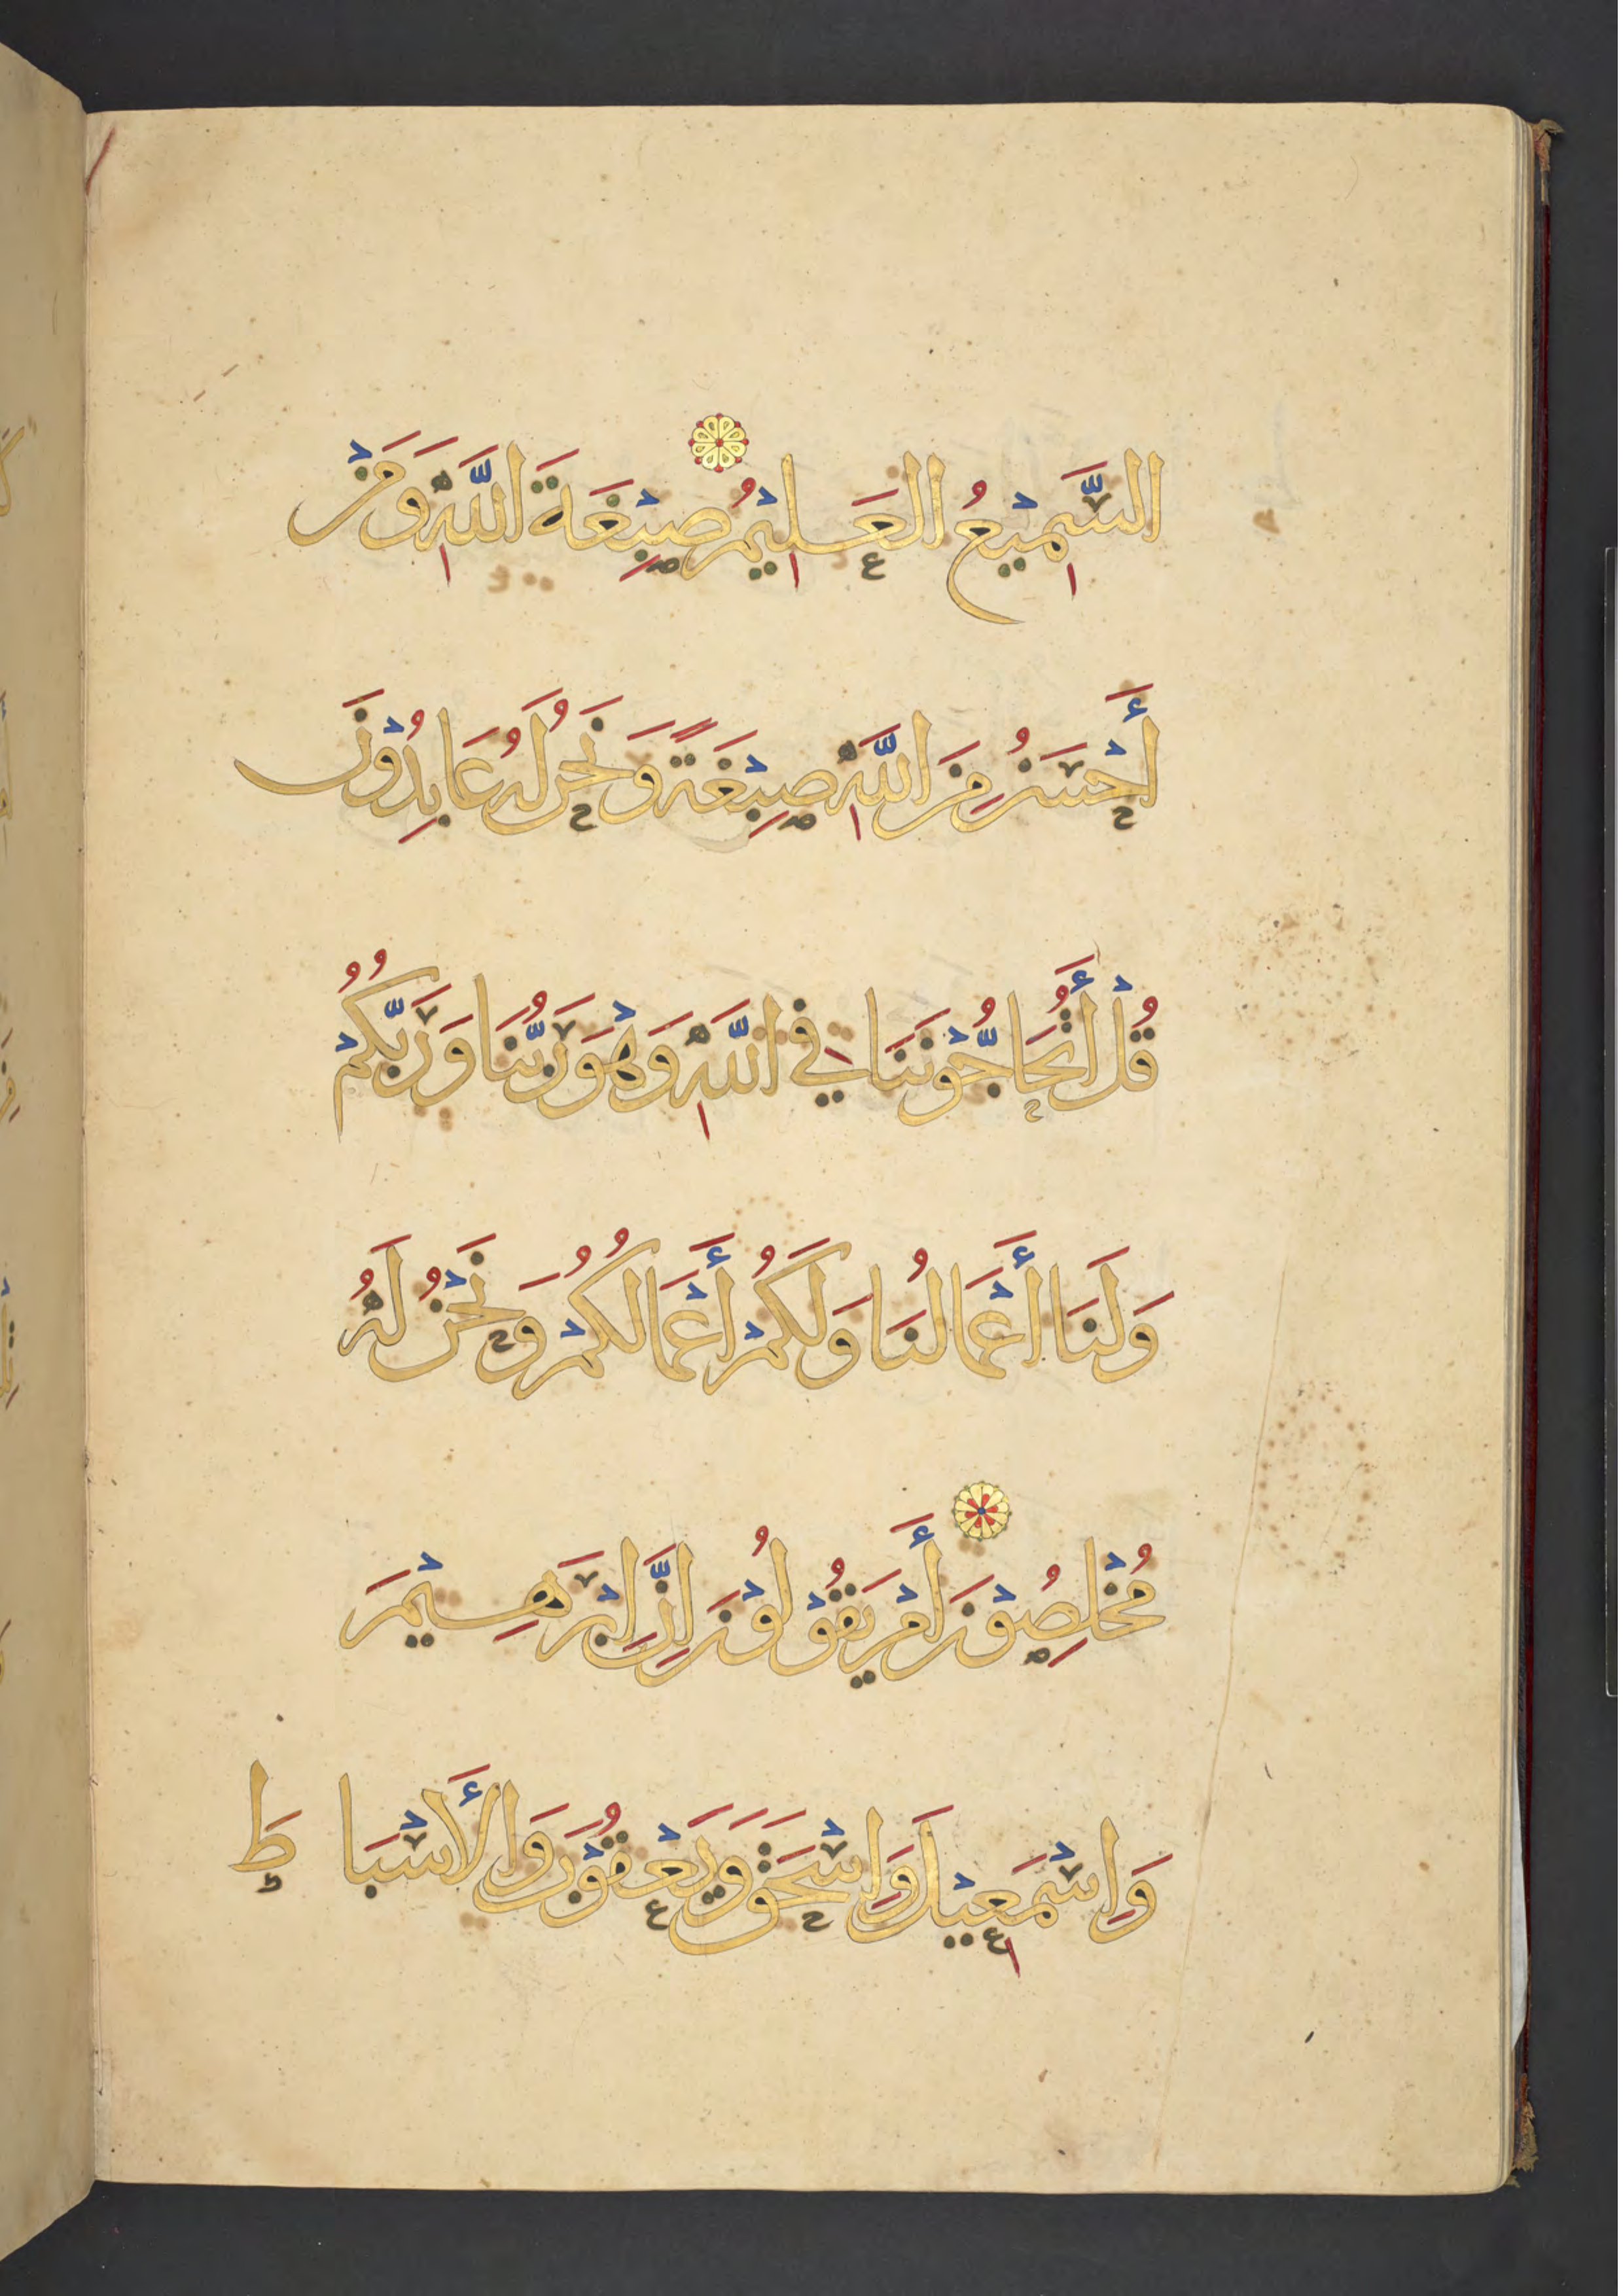 السَّمِيْعُ العَلِيْمُ صِبْغَةَ اللَّهِ وَمَنْ
أَحْسَنُ مِنَ اللَّهِ صِبْغَةً وَنَحْنُ لَهُ عَابِدُوْنَ
قُلْ أَتُحَاجُّوْنَنَا فِي اللَّهِ وَهْوَ رَبُّنَا وَرَبُّكُمْ
وَلَنَا أَعْمَالُنَا وَلَكُمْ أَعْمَالُكُمْ وَنَحْنُ لَهُ
مُخْلِصُوْنَ أَمْ يَقُوْلُوْنَ اِنَّ اِبْرَهِيْمَ
وَاِسْمَعِيْلَ وَاِسْحَقَ وَيَعْقُوْبَ وَالأَسْبَاطَ